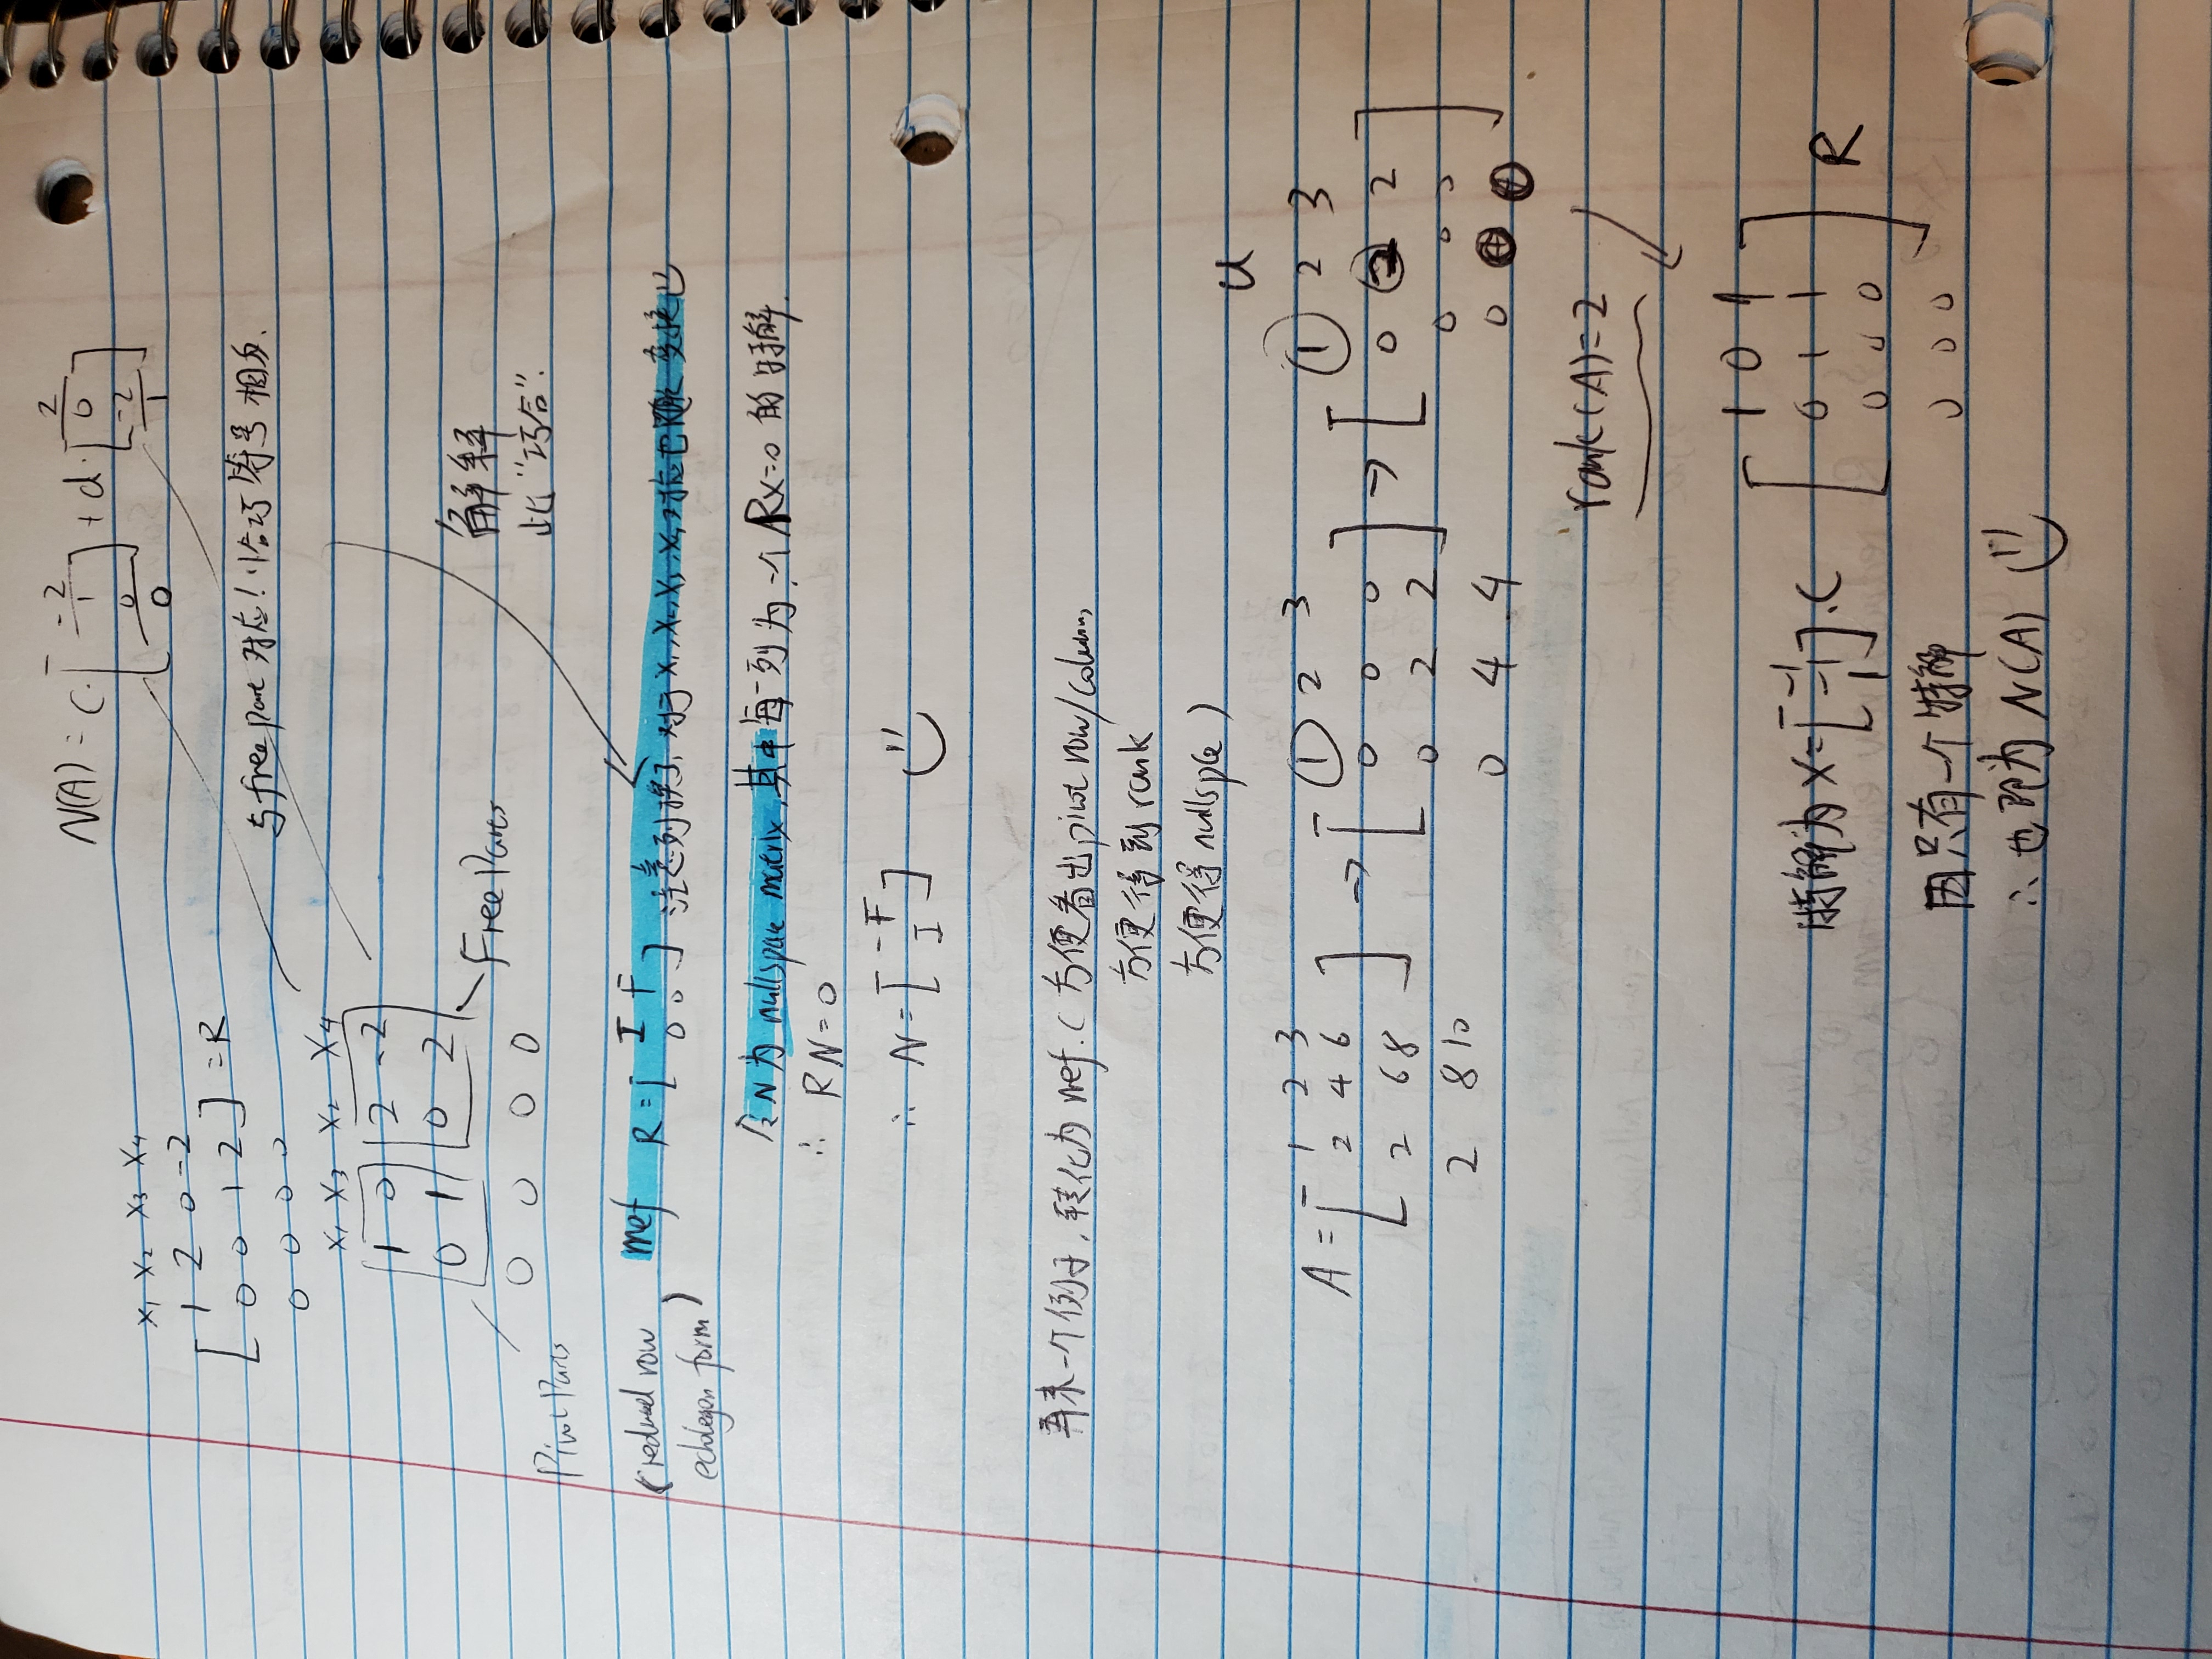 N(A) = C·[-2 1 0 0] + d·[2 0 -2 1]
x₁ x₂ x₃ x₄
1 2 0 -2
0 0 1 2 = R
0 0 0 0
与free part 对应！恰巧符号相反.
x₁ x₃ x₂ x₄
1 0 2 -2
0 1 0 2
0 0 0 0
Free Parts
Pivot Parts
解释
此"巧合".
(reduced row
echelegon form)
rref R = [I F
0 0] 注意列换了, 对于x₁,x₂,x₃,x₄对应也随之变换
令N为 nullspace matrix, 其中每一列为一个Rx=0 的特解.
∴ RN=0
∴ N=[-F
I]
再来一个例子, 转化为 rref. (方便看出pivot row/column,
方便得到 rank
方便得nullspce)
U
A = [1 2 3
2 4 6
2 6 8
2 8 10]
→ [1 2 3
0 0 0
0 2 2
0 4 4]
→ [1 2 3
0 2 2
0 0 0
0]
rank(A)=2
[1 0 1
0 1 1
0 0 0
0 0 0] R
特解为 X=[-1
-1
1]·C
因只有一个特解
∴ 也即为 N(A)